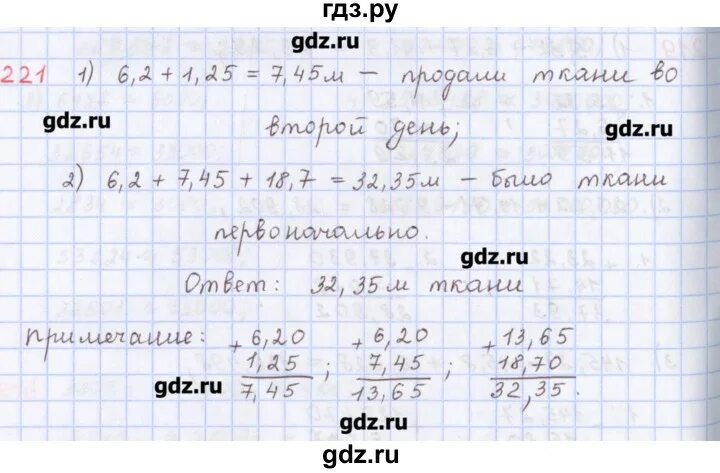 гдз.ру
gdz.ru
221 1) 6,2 + 1,25 = 7,45 м – продали ткани во
gdz.ru gdz.ru
второй день;
2) 6,2 + 7,45 + 18,7 = 32,35 м – было ткани
первоначально.
gdz.ru
Ответ: 32,35 м ткани
примечание: + 6,20 + 6,20 + 13,65
1,25 ; 7,45 ; 18,70
gdz.ru 7,45 13,65 32,35.
gdz.ru
gdz.ru